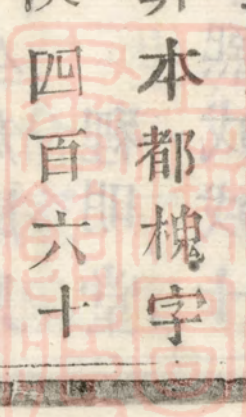 本都槐字
四百六十